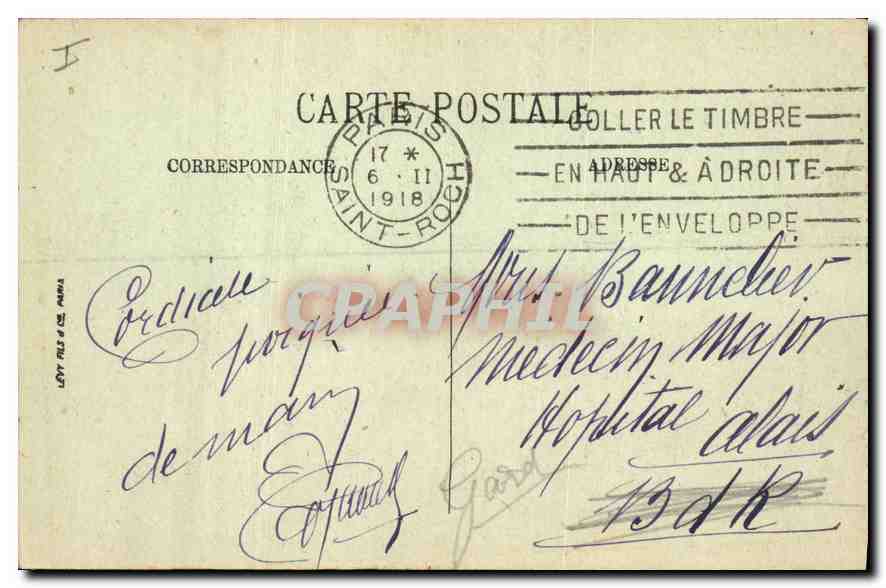 CARTE POSTALE
CORRESPONDANCE
ADRESSE
PARIS
SAINT-ROCH
17 *
6 · II
1918
COLLER LE TIMBRE
EN HAUT & À DROITE
DE L'ENVELOPPE
LÉVY FILS & Cie PARIS
Cordiale
poignée
de main
Médecin Major
Hopital
alais
Gard
B d R
CPAPHIL